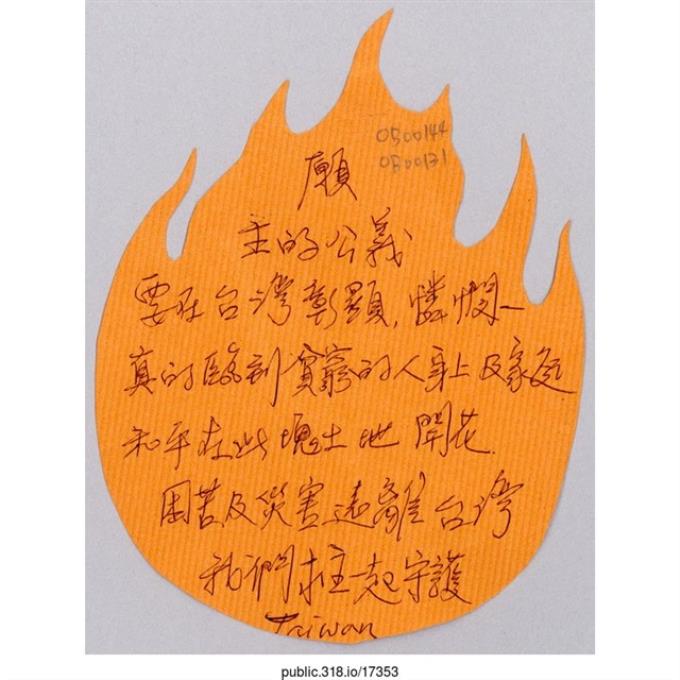 0500144
0500131
願
主的公義
要在台灣彰顯,憐憫
真的臨到貧窮的人身上及家庭
和平在此塊土地開花.
困苦及災害遠離台灣
我們在主一起守護
Taiwan
public.318.io/17353